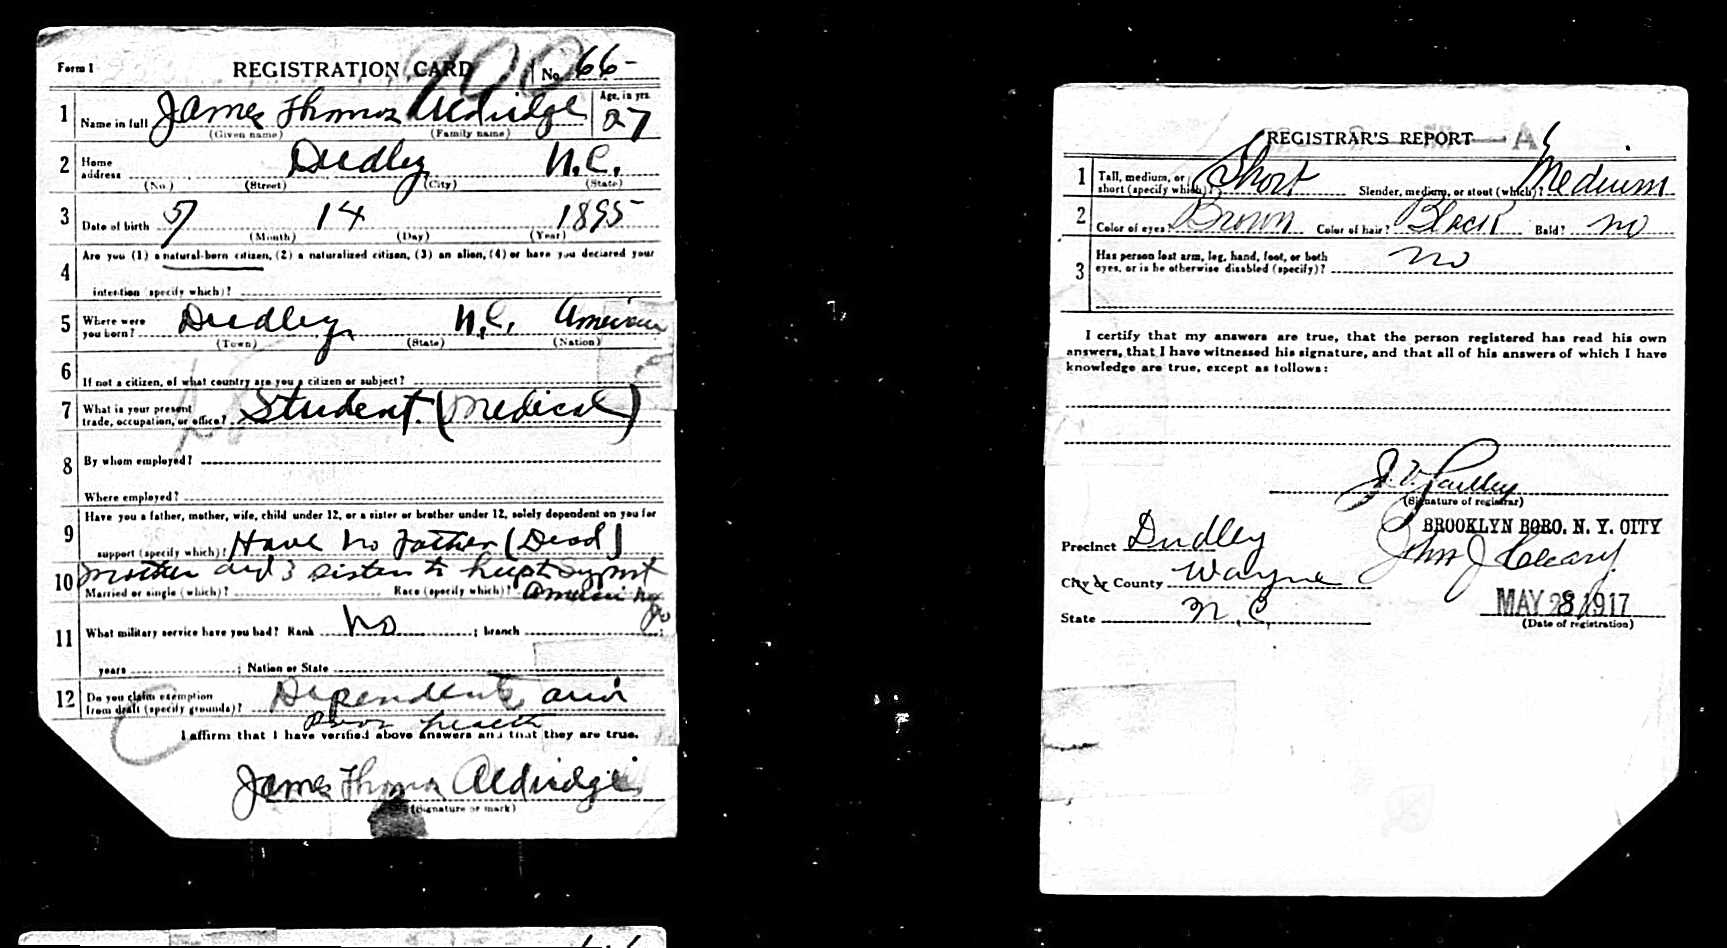 Form 1 REGISTRATION CARD No. 66-
1 Name in full James Thomas Aldridge Age, in yrs. 27
(Given name) (Family name)
2 Home address Dudley N.C.
(No.) (Street) (City) (State)
3 Date of birth 5 14 1895
(Month) (Day) (Year)
4 Are you (1) a natural-born citizen, (2) a naturalized citizen, (3) an alien, (4) or have you declared your
intention (specify which)?
5 Where were you born? Dudley N.C. American
(Town) (State) (Nation)
6 If not a citizen, of what country are you a citizen or subject?
7 What is your present trade, occupation, or office? Student (Medical)
8 By whom employed?
Where employed?
9 Have you a father, mother, wife, child under 12, or a sister or brother under 12, solely dependent on you for
support (specify which)? Have no Father (Dead)
mother and 3 sisters to help support
10 Married or single (which)? Race (specify which)?
11 What military service have you had? Rank No ; branch ;
years ; Nation or State
12 Do you claim exemption from draft (specify grounds)? Dependents and
Poor health
I affirm that I have verified above answers and that they are true.
James Thomas Aldridge
(Signature or mark)
REGISTRAR'S REPORT A
1 Tall, medium, or short (specify which)? Short Slender, medium, or stout (which)? Medium
2 Color of eyes? Brown Color of hair? Black Bald? no
3 Has person lost arm, leg, hand, foot, or both eyes, or is he otherwise disabled (specify)? no
I certify that my answers are true, that the person registered has read his own
answers, that I have witnessed his signature, and that all of his answers of which I have
knowledge are true, except as follows:
(Signature of registrar)
BROOKLYN BORO. N. Y. CITY
Precinct Dudley John J Cleary
City or County Wayne
State N.C. MAY 28 1917
(Date of registration)